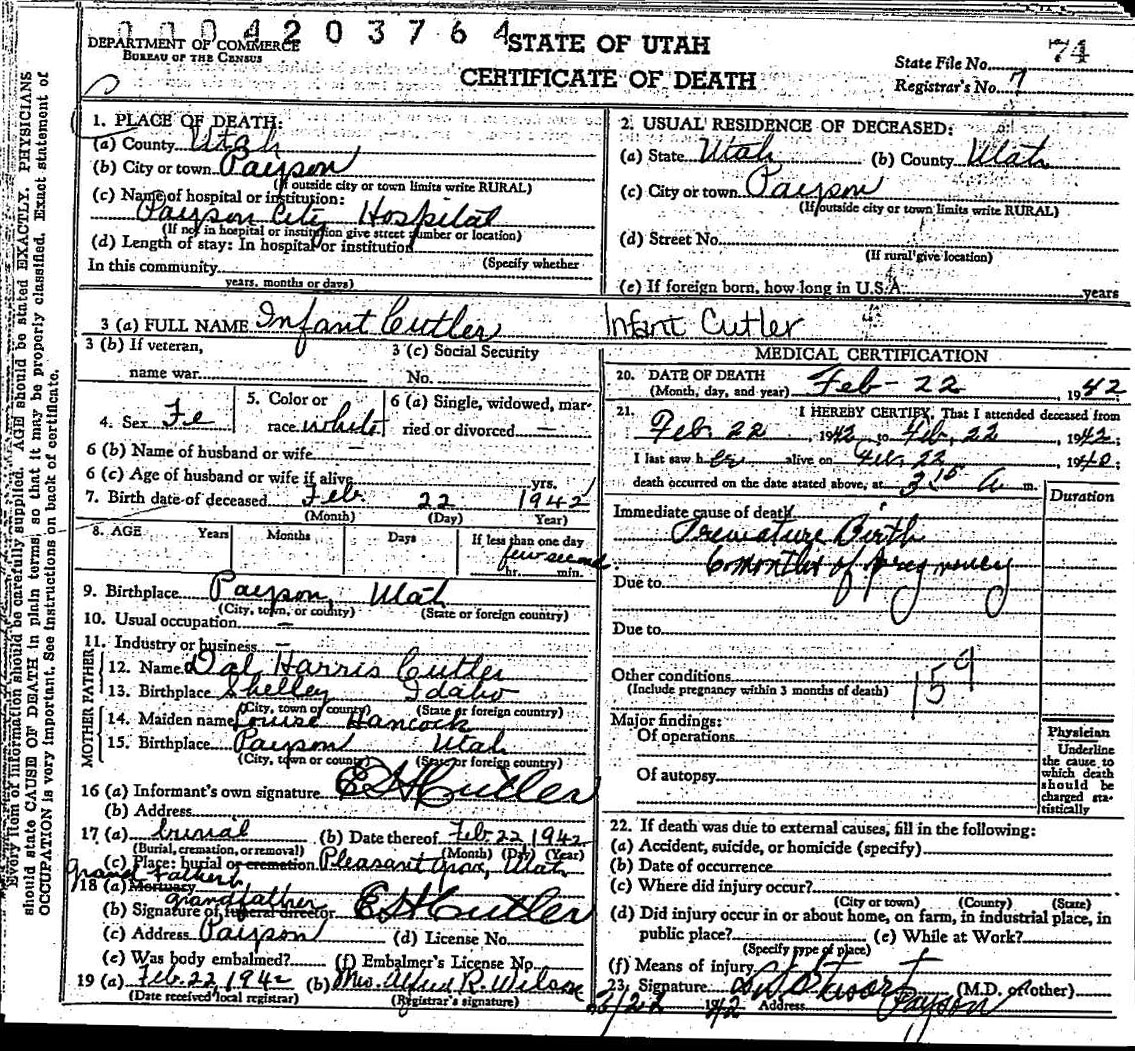 0004203764
DEPARTMENT OF COMMERCE
BUREAU OF THE CENSUS
STATE OF UTAH
CERTIFICATE OF DEATH
74
State File No.
Registrar's No. 7
Every item of information should be carefully supplied. AGE should be stated EXACTLY. PHYSICIANS
should state CAUSE OF DEATH in plain terms, so that it may be properly classified. Exact statement of
OCCUPATION is very important. See instructions on back of certificate.
1. PLACE OF DEATH:
(a) County Utah
(b) City or town Payson
(If outside city or town limits write RURAL)
(c) Name of hospital or institution:
Payson City Hospital
(If not in hospital or institution give street number or location)
(d) Length of stay: In hospital or institution
(Specify whether
In this community
years, months or days)
2. USUAL RESIDENCE OF DECEASED:
(a) State Utah (b) County Utah
(c) City or town Payson
(If outside city or town limits write RURAL)
(d) Street No.
(If rural give location)
(e) If foreign born, how long in U.S.A. years
3 (a) FULL NAME Infant Cutler Infant Cutler
3 (b) If veteran,
name war
3 (c) Social Security
No.
4. Sex Fe
5. Color or
race white
6 (a) Single, widowed, mar-
ried or divorced —
6 (b) Name of husband or wife —
6 (c) Age of husband or wife if alive yrs.
7. Birth date of deceased Feb. 22 1942
(Month) (Day) Year)
8. AGE Years Months Days If less than one day
few second
hr. min.
9. Birthplace Payson, Utah
(City, town, or county) (State or foreign country)
10. Usual occupation —
11. Industry or business
FATHER
12. Name Dal Harris Cutler
13. Birthplace Shelley Idaho
(City, town or county) (State or foreign country)
MOTHER
14. Maiden name Louise Hancock
15. Birthplace Payson Utah
(City, town or county) (State or foreign country)
16 (a) Informant's own signature E S H Cutler
(b) Address
17 (a) burial (b) Date thereof Feb. 22 1942
(Burial, cremation, or removal) (Month) (Day) (Year)
(c) Place: burial or cremation Pleasant Grove, Utah
grand Father
18 (a) Mortuary
grandfather
(b) Signature of funeral director E S H Cutler
(c) Address Payson (d) License No.
(e) Was body embalmed? (f) Embalmer's License No.
19 (a) Feb. 22, 1942 (b) Mrs. Alfred R. Wilson
(Date received local registrar) (Registrar's signature)
MEDICAL CERTIFICATION
20. DATE OF DEATH
(Month, day, and year) Feb - 22, 1942
21. I HEREBY CERTIFY, That I attended deceased from
Feb. 22, 1942, to Feb. 22, 1942;
I last saw her alive on Feb. 22, 1940;
death occurred on the date stated above, at 3 15 A m.
Duration
Immediate cause of death
Premature Birth
6 months of pregnancy
Due to
Due to
Other conditions
(Include pregnancy within 3 months of death)
159
Major findings:
Of operations
Of autopsy
Physician
Underline
the cause to
which death
should be
charged sta-
tistically
22. If death was due to external causes, fill in the following:
(a) Accident, suicide, or homicide (specify)
(b) Date of occurrence
(c) Where did injury occur?
(City or town) (County) (State)
(d) Did injury occur in or about home, on farm, in industrial place, in
public place? (e) While at Work?
(Specify type of place)
(f) Means of injury
23. Signature Stewart (M.D. or other)
2/22 1942 Address Payson